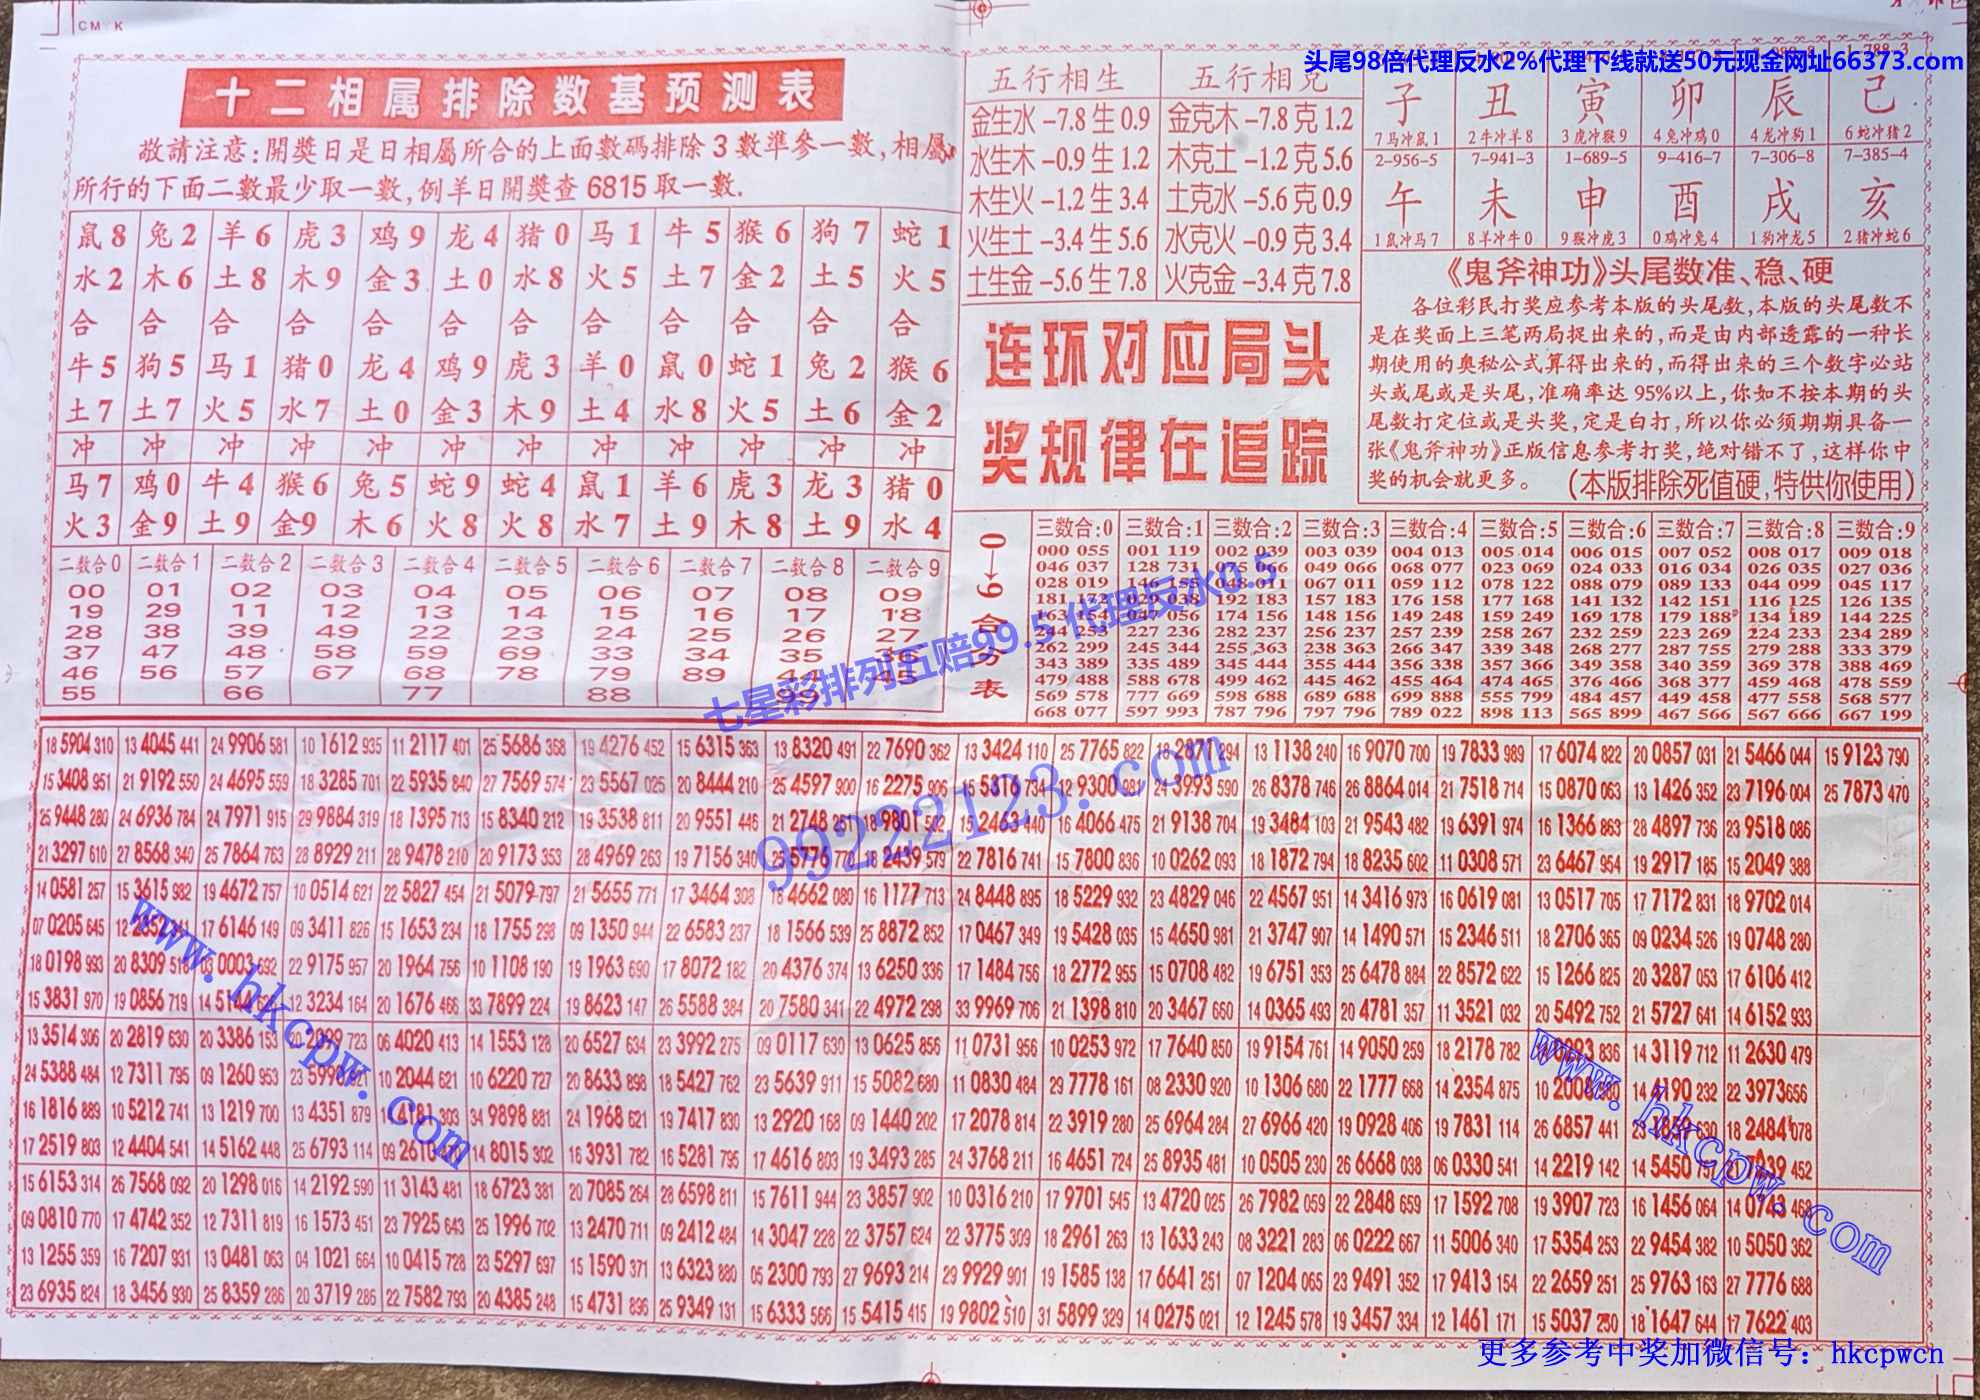 CM K
头尾98倍代理反水2%代理下线就送50元现金网址66373.com
十二相属排除数基预测表
敬請注意:開獎日是日相屬所合的上面數碼排除3數準參一數,相屬
所行的下面二數最少取一數,例羊日開獎查6815取一數.
鼠8 兔2 羊6 虎3 鸡9 龙4 猪0 马1 牛5 猴6 狗7 蛇1
水2 木6 土8 木9 金3 土0 水8 火5 土7 金2 土5 火5
合 合 合 合 合 合 合 合 合 合 合 合
牛5 狗5 马1 猪0 龙4 鸡9 虎3 羊0 鼠0 蛇1 兔2 猴6
土7 土7 火5 水7 土0 金3 木9 土4 水8 火5 土6 金2
冲 冲 冲 冲 冲 冲 冲 冲 冲 冲 冲 冲
马7 鸡0 牛4 猴6 兔5 蛇9 蛇4 鼠1 羊6 虎3 龙3 猪0
火3 金9 土9 金9 木6 火8 火8 水7 土9 木8 土9 水4
二数合0 二数合1 二数合2 二数合3 二数合4 二数合5 二数合6 二数合7 二数合8 二数合9
00 01 02 03 04 05 06 07 08 09
19 29 11 12 13 14 15 16 17 18
28 38 39 49 22 23 24 25 26 27
37 47 48 58 59 69 33 34 35 36
46 56 57 67 68 78 79 89 44 45
55 66 77 88 99
五行相生 五行相克
金生水-7.8生0.9 金克木-7.8克1.2
水生木-0.9生1.2 木克土-1.2克5.6
木生火-1.2生3.4 土克水-5.6克0.9
火生土-3.4生5.6 水克火-0.9克3.4
土生金-5.6生7.8 火克金-3.4克7.8
连环对应局头
奖规律在追踪
子 丑 寅 卯 辰 己
7马冲鼠1 2牛冲羊8 3虎冲猴9 4兔冲鸡0 4龙冲狗1 6蛇冲猪2
2-956-5 7-941-3 1-689-5 9-416-7 7-306-8 7-385-4
午 未 申 酉 戌 亥
1鼠冲马7 8羊冲牛0 9猴冲虎3 0鸡冲兔4 1狗冲龙5 2猪冲蛇6
《鬼斧神功》头尾数准、稳、硬
各位彩民打奖应参考本版的头尾数,本版的头尾数不
是在奖面上三笔两局捉出来的,而是由内部透露的一种长
期使用的奥秘公式算得出来的,而得出来的三个数字必站
头或尾或是头尾,准确率达95%以上,你如不按本期的头
尾数打定位或是头奖,定是白打,所以你必须期期具备一
张《鬼斧神功》正版信息参考打奖,绝对错不了,这样你中
奖的机会就更多。(本版排除死值硬,特供你使用)
0→9合分表
三数合:0 三数合:1 三数合:2 三数合:3 三数合:4 三数合:5 三数合:6 三数合:7 三数合:8 三数合:9
000 055 001 119 002 039 003 039 004 013 005 014 006 015 007 052 008 017 009 018
046 037 128 731 075 066 049 066 068 077 023 069 024 033 016 034 026 035 027 036
028 019 146 155 048 01 067 011 059 112 078 122 088 079 089 133 044 099 045 117
181 172 029 038 192 183 157 183 176 158 177 168 141 132 142 151 116 125 126 135
163 154 047 056 174 156 148 156 149 248 159 249 169 178 179 188 134 189 144 225
244 253 227 236 282 237 256 237 257 239 258 267 232 259 223 269 224 233 234 289
262 299 245 344 255 363 238 363 266 347 339 348 268 277 287 755 279 288 333 379
343 389 335 489 345 444 355 444 356 338 357 366 349 358 340 359 369 378 388 469
479 488 588 678 499 462 445 462 455 464 474 465 376 466 368 377 459 468 478 559
569 578 777 669 598 688 689 688 699 888 555 799 484 457 449 458 477 558 568 577
668 077 597 993 787 796 797 796 789 022 898 113 565 899 467 566 567 666 667 199
18 5904 310 13 4045 441 24 9906 581 10 1612 935 11 2117 401 25 5686 368 19 4276 452 15 6315 363 13 8320 491 22 7690 362 13 3424 110 25 7765 822 18 2871 294 13 1138 240 16 9070 700 19 7833 989 17 6074 822 20 0857 031 21 5466 044 15 9123 790
15 3408 951 21 9192 550 24 4695 559 18 3285 701 22 5935 840 27 7569 574 23 5567 025 20 8444 210 25 4597 900 16 2275 906 15 5316 734 12 9300 081 24 3993 590 26 8378 746 26 8864 014 21 7518 714 15 0870 063 13 1426 352 23 7196 004 25 7873 470
25 9448 280 24 6936 784 24 7971 915 29 9884 319 18 1395 713 15 8340 212 19 3538 811 20 9551 446 21 2748 251 18 9801 502 15 2463 440 16 4066 475 21 9138 704 19 3484 103 21 9543 482 19 6391 974 16 1366 863 28 4897 736 23 9518 086
21 3297 610 27 8568 340 25 7864 763 28 8929 211 28 9478 210 20 9173 353 28 4969 263 19 7156 340 25 5776 770 18 2439 579 22 7816 741 15 7800 836 10 0262 093 18 1872 794 18 8235 602 11 0308 571 23 6467 954 19 2917 185 15 2049 388
14 0581 257 15 3615 982 19 4672 757 10 0514 621 22 5827 454 21 5079 797 21 5655 771 17 3464 308 18 4662 080 16 1177 713 24 8448 895 18 5229 932 23 4829 046 22 4567 951 14 3416 973 16 0619 081 13 0517 705 17 7172 831 18 9702 014
07 0205 645 12 2352 17 6146 149 09 3411 826 15 1653 234 18 1755 298 09 1350 944 22 6583 237 18 1566 539 25 8872 852 17 0467 349 19 5428 035 15 4650 981 21 3747 907 14 1490 571 15 2346 511 18 2706 365 09 0234 526 19 0748 280
18 0198 993 20 8309 516 03 0003 692 22 9175 957 20 1964 756 10 1108 190 19 1963 690 17 8072 182 20 4376 374 13 6250 336 17 1484 756 18 2772 955 15 0708 482 19 6751 353 25 6478 884 22 8572 622 15 1266 825 20 3287 053 17 6106 412
15 3831 970 19 0856 719 14 5144 12 3234 164 20 1676 466 33 7899 224 19 8623 147 26 5588 384 20 7580 341 22 4972 298 33 9969 706 21 1398 810 20 3467 650 14 0365 493 20 4781 357 11 3521 032 20 5492 752 21 5727 641 14 6152 933
13 3514 306 20 2819 630 20 3386 153 20 723 06 4020 413 14 1553 128 20 6527 634 23 3992 275 09 0117 630 13 0625 856 11 0731 956 10 0253 972 17 7640 850 19 9154 761 14 9050 259 18 2178 782 836 14 3119 712 11 2630 479
24 5388 484 12 7311 795 09 1260 953 23 10 2044 621 10 6220 727 20 8633 898 18 5427 762 23 5639 911 15 5082 680 11 0830 484 29 7778 161 08 2330 920 10 1306 680 22 1777 668 14 2354 875 10 14 4190 232 22 3973 656
16 1816 889 10 5212 741 13 1219 700 13 4351 879 4181 303 34 9898 881 24 1968 621 19 7417 830 13 2920 168 09 1440 202 17 2078 814 22 3919 280 25 6964 284 27 6966 420 19 0928 406 19 7831 114 26 6857 441 630 18 2484 078
17 2519 803 12 4404 541 14 5162 448 25 6793 114 09 2610 14 8015 302 16 3931 782 16 5281 795 17 4616 803 19 3493 285 24 3768 211 16 4651 724 25 8935 481 10 0505 230 26 6668 038 06 0330 541 14 2219 142 14 5450 452
15 6153 314 26 7568 092 20 1298 016 14 2192 590 11 3143 481 18 6723 381 20 7085 264 28 6598 811 15 7611 944 23 3857 902 10 0316 210 17 9701 545 13 4720 025 26 7982 059 22 2848 659 17 1592 708 19 3907 723 16 1456 064 14 0743
09 0810 770 17 4742 352 12 7311 819 16 1573 451 23 7925 643 25 1996 702 13 2470 711 09 2412 484 14 3047 228 22 3757 624 22 3775 309 18 2961 263 13 1633 243 08 3221 283 06 0222 667 11 5006 340 17 5354 253 22 9454 382 10 5050 362
13 1255 359 16 7207 931 13 0481 063 04 1021 664 10 0415 728 23 5297 697 15 1590 371 13 6323 880 05 2300 793 27 9693 214 29 9929 901 19 1585 138 17 6641 251 07 1204 065 23 9491 352 17 9413 154 22 2659 251 25 9763 163 27 7776 688
23 6935 824 18 3456 930 25 8359 286 20 3719 286 22 7582 793 20 4385 248 15 4731 836 25 9349 131 15 6333 566 15 5415 415 19 9802 510 31 5899 329 14 0275 021 12 1245 578 19 3457 334 12 1461 171 15 5037 250 18 1647 644 17 7622 403
七星彩排列五赔99.5代理反水0.5
99222123.com
www.hkcpw.com
www.hkcpw.com
更多参考中奖加微信号：hkcpwcn